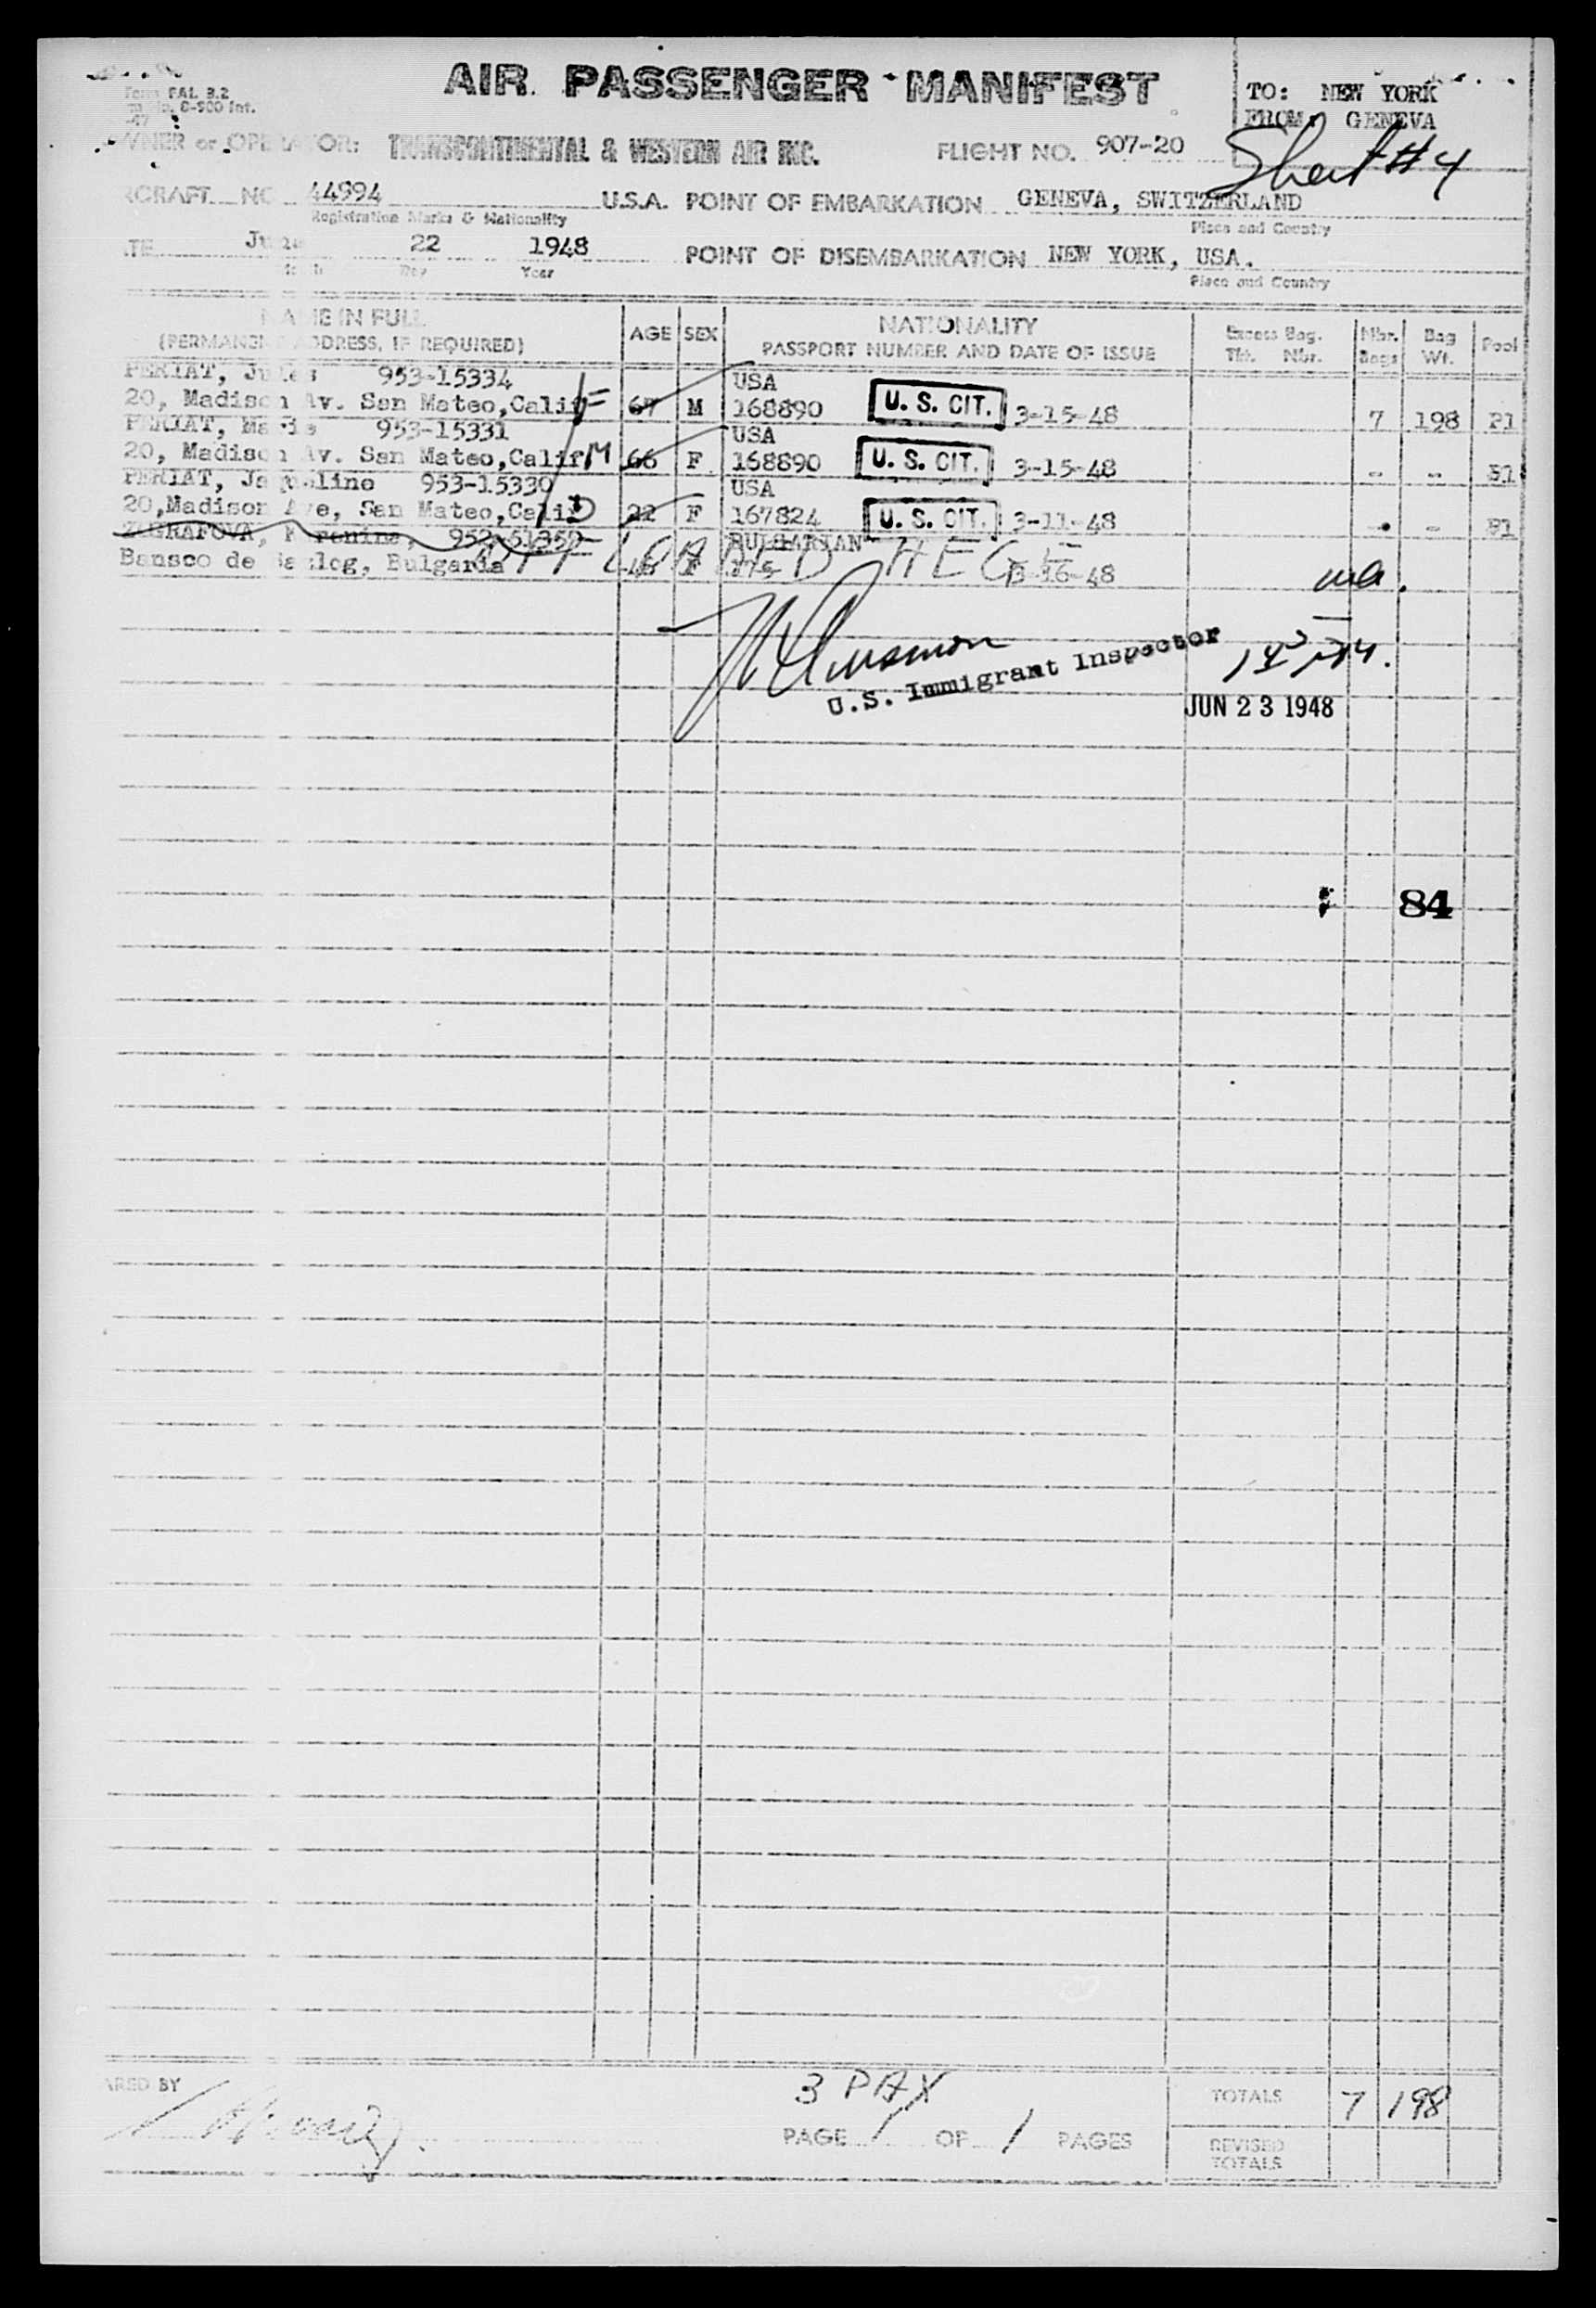 AIR PASSENGER MANIFEST
TO: NEW YORK
FROM: GENEVA
Sheet #4
FAL 3.2
TRANSCONTINENTAL & WESTERN AIR INC.
FLIGHT NO. 907-20
44994 U.S.A. POINT OF EMBARKATION GENEVA, SWITZERLAND
Registration Marks & Nationality
Place and Country
June 22 1948 POINT OF DISEMBARKATION NEW YORK, USA.
Day Year
Place and Country
NAME IN FULL AGE SEX NATIONALITY Excess Bag. Nbr. Bag Pool
(PERMANENT ADDRESS, IF REQUIRED) PASSPORT NUMBER AND DATE OF ISSUE Tkt. Nbr. Bags Wt.
PERIAT, Jules 953-15334 USA
20, Madison Av. San Mateo,Calif F 67 M 168890 U. S. CIT. 3-15-48 7 198 P1
PERIAT, Marie 953-15331 USA
20, Madison Av. San Mateo,Calif M 66 F 168890 U. S. CIT. 3-15-48 - -
PERIAT, Jaqueline 953-15330 USA
20,Madison Ave, San Mateo,Calif D 22 F 167824 U. S. CIT. 3-11-48 - P1
BULGARIAN
Bansco de Bulgaria F -16-48
OFF LOADED HEGE
U.S. Immigrant Inspector
JUN 23 1948
84
BY
3 PAX
TOTALS 7 198
PAGE 1 OF 1 PAGES
REVISED
TOTALS